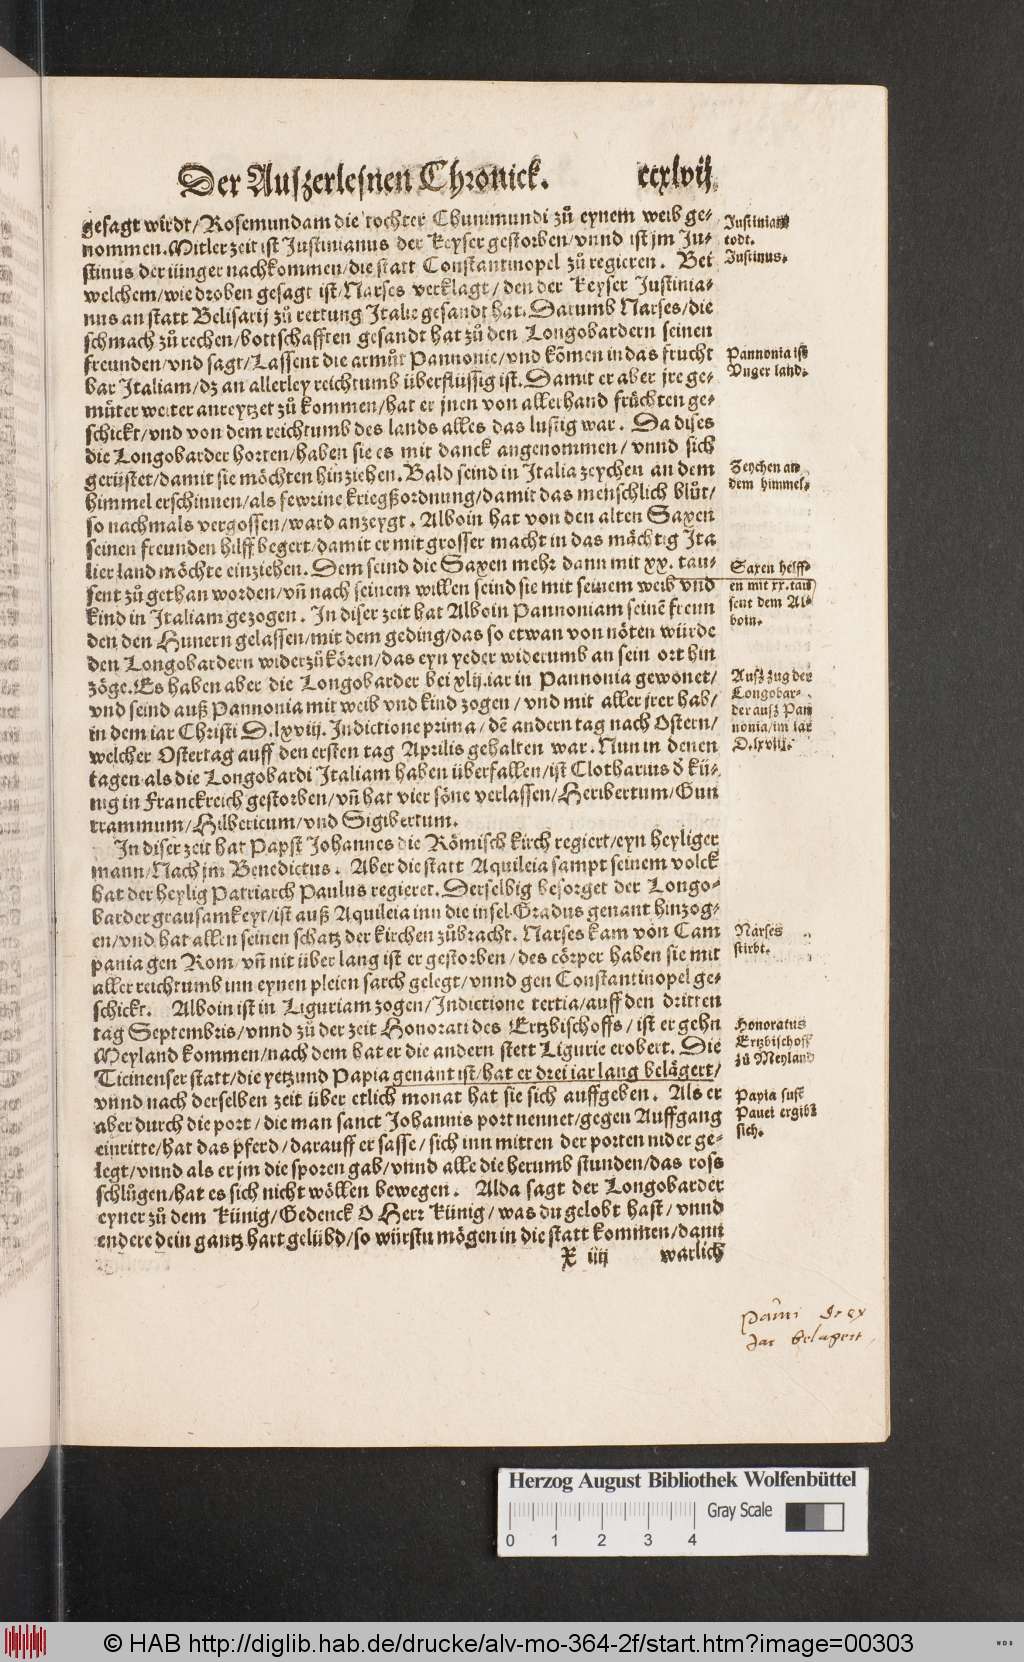 Der Auszerlesnen Chronick. ccxlvij
gesagt wirdt/Rosemundam die tochter Chunimundi zů eynem weib ge-
nommen. Mitler zeit ist Justinianus der Keyser gestorben/vnnd ist jm Ju-
stinus der jünger nachkommen/die statt Constantinopel zů regieren. Bei
welchem/wie droben gesagt ist/Narses verklagt/den der Keyser Justinia-
nus an statt Belisarij zů rettung Italie gesandt hat. Darumb Narses/die
schmach zů rechen/bottschafften gesandt hat zů den Longobardern seinen
freunden/vnd sagt/Lassent die armůt Pannonie/vnd kõmen in das frucht
bar Italiam/dz an allerley reichtumb überflüssig ist. Damit er aber jre ge-
müter weiter anreytzet zů kommen/hat er jnen von allerhand früchten ge-
schickt/vnd von dem reichtumb des lands alles das lustig war. Da dises
die Longobarder horten/haben sie es mit danck angenommen/vnnd sich
gerüstet/damit sie möchten hinziehen. Bald seind in Italia zeychen an dem
himmel erschinnen/als fewrine kriegßordnung/damit das menschlich blůt/
so nachmals vergossen/ward anzeygt. Alboin hat von den alten Saxen
seinen freunden hilff begert/damit er mit grosser macht in das mächtig Ita
lier land möchte einziehen. Dem seind die Saxen mehr dann mit xx. tau-
sent zů gethan worden/vñ nach seinem willen seind sie mit seinem weib vnd
kind in Italiam gezogen. In diser zeit hat Alboin Pannoniam seinẽ freun
den den Hunern gelassen/mit dem geding/das so etwan von nöten würde
den Longobardern widerzůkören/das eyn yeder widerumb an sein ort hin
zöge. Es haben aber die Longobarder bei xlij. iar in Pannonia gewonet/
vnd seind auß Pannonia mit weib vnd kind zogen/vnd mit aller jrer hab/
in dem iar Christi D.lxviij. Indictione prima/dẽ andern tag nach Ostern/
welcher Ostertag auff den ersten tag Aprilis gehalten war. Nun in denen
tagen als die Longobardi Italiam haben überfallen/ist Clotharius ď kü-
nig in Franckreich gestorben/vñ hat vier söne verlassen/Heribertum/Gun
trammum/Hilbericum/vnd Sigibertum.
In diser zeit hat Papst Johannes die Römisch kirch regiert/eyn heyliger
mann/Nach jm Benedictus. Aber die statt Aquileia sampt seinem volck
hat der heylig Patriarch Paulus regieret. Derselbig besorget der Longo-
barder grausamkeyt/ist auß Aquileia inn die insel Gradus genant hinzog-
en/vnd hat allen seinen schatz der kirchen zůbracht. Narses kam von Cam
pania gen Rom/vñ nit über lang ist er gestorben/des cörper haben sie mit
aller reichtumb inn eynen pleien sarch gelegt/vnnd gen Constantinopel ge-
schickt. Alboin ist in Liguriam zogen/Indictione tertia/auff den dritten
tag Septembris/vnnd zů der zeit Honorati des Ertzbischoffs/ist er gehn
Meyland kommen/nach dem hat er die andern stett Ligurie erobert. Die
Ticinenser statt/die yetzund Papia genant ist/hat er drei iar lang belägert/
vnnd nach derselben zeit über etlich monat hat sie sich auffgeben. Als er
aber durch die port/die man sanct Johannis port nennet/gegen Auffgang
einritte/hat das pferd/darauff er sasse/sich inn mitten der porten nider ge-
legt/vnnd als er jm die sporen gab/vnnd alle die herumb stunden/das ross
schlůgen/hat es sich nicht wöllen bewegen. Alda sagt der Longobarder
eyner zů dem Künig/Gedenck O Herr Künig/was du gelobt hast/vnnd
endere dein gantz hart gelübd/so würstu mögen in die statt kommen/dann
X iij warlich
Justinian
todt.
Justinus.
Pannonia ist
Vnger land.
Zeychen an
dem himmel.
Saxen helff-
en mit xx. tau
sent dem Al-
boin.
Auszzug der
Longobar-
der ausz Pan
nonia/im iar
D.lxviij.
Narses
stirbt.
Honoratus
Ertzbischoff
zů Meyland
Papia sust
Pauei ergibt
sich.
Jar belagert
Herzog August Bibliothek Wolfenbüttel
Gray Scale
0 1 2 3 4
© HAB http://diglib.hab.de/drucke/alv-mo-364-2f/start.htm?image=00303